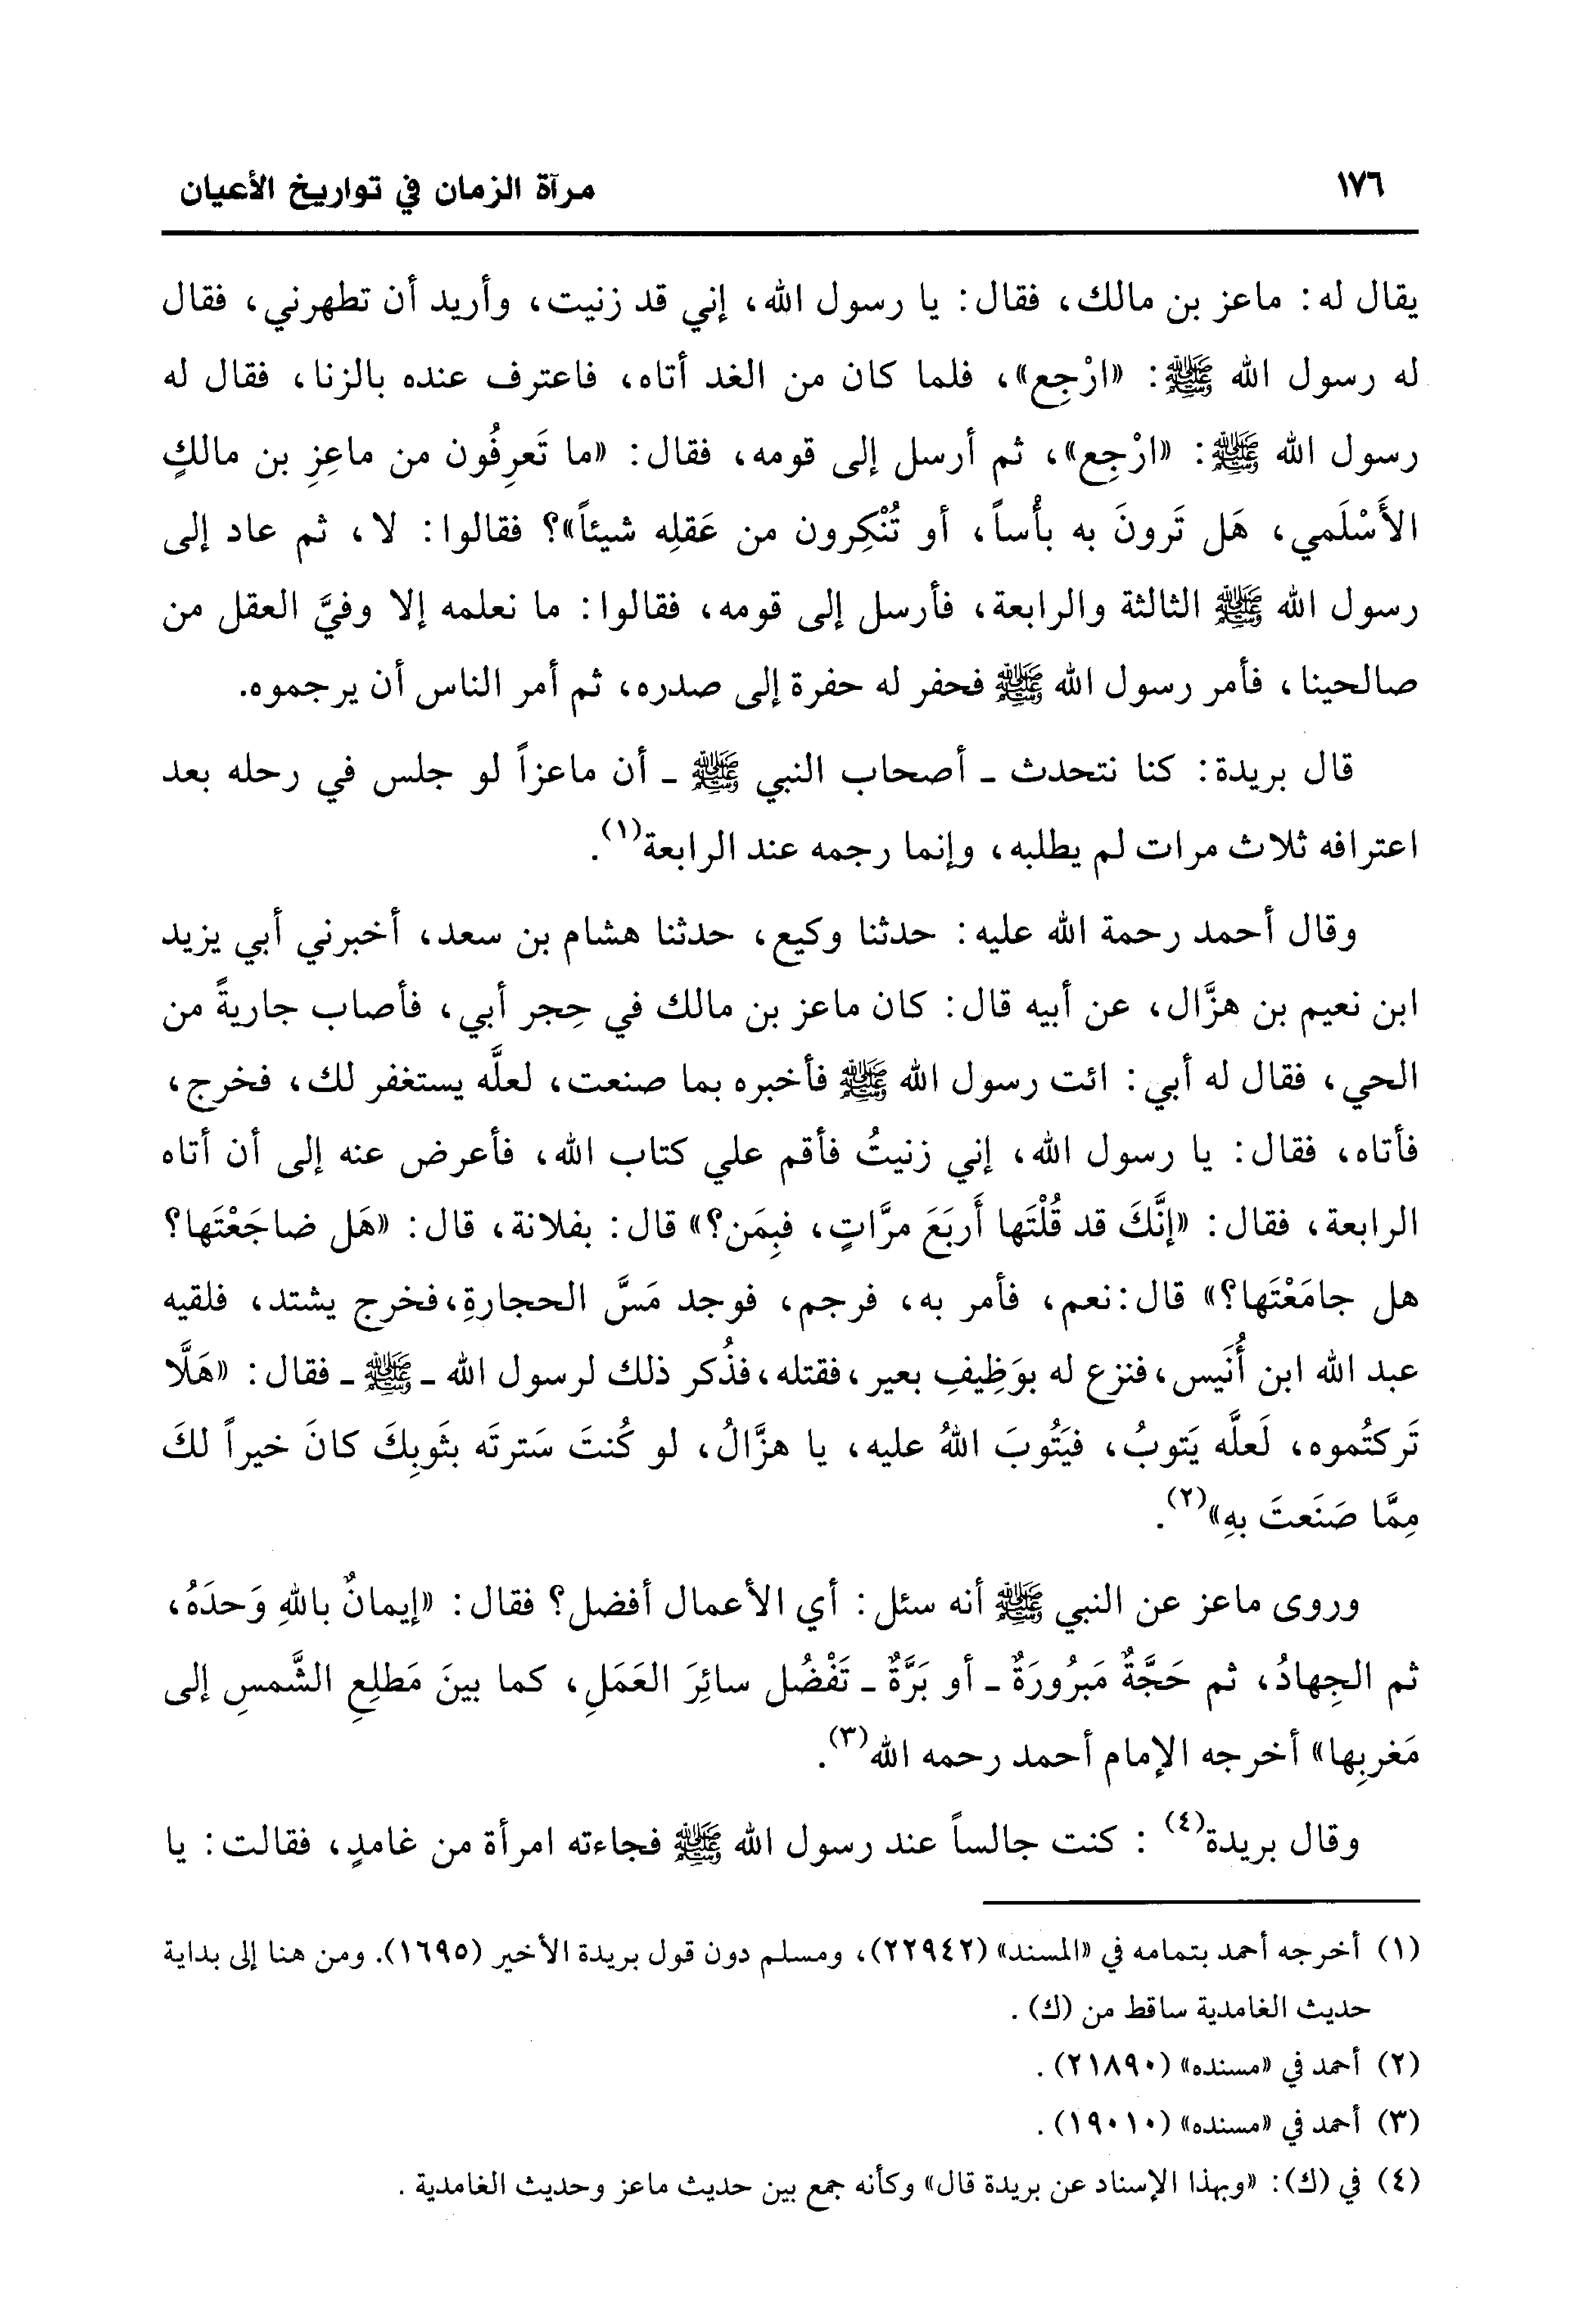 ١٧٦
مرآة الزمان في تواريخ الأعيان
يقال له: ماعز بن مالك، فقال: يا رسول الله، إني قد زنيت، وأريد أن تطهرني، فقال
له رسول الله ﷺ: «ارْجِع»، فلما كان من الغد أتاه، فاعترف عنده بالزنا، فقال له
رسول الله ﷺ: «ارْجِع»، ثم أرسل إلى قومه، فقال: «ما تَعرِفُون من ماعِزِ بن مالكٍ
الأَسْلَمي، هَل تَرونَ به بأْساً، أو تُنْكِرون من عَقلِه شيئاً»؟ فقالوا: لا، ثم عاد إلى
رسول الله ﷺ الثالثة والرابعة، فأرسل إلى قومه، فقالوا: ما نعلمه إلا وفيَّ العقل من
صالحينا، فأمر رسول الله ﷺ فحفر له حفرة إلى صدره، ثم أمر الناس أن يرجموه.
قال بريدة: كنا نتحدث ـ أصحاب النبي ﷺ ـ أن ماعزاً لو جلس في رحله بعد
اعترافه ثلاث مرات لم يطلبه، وإنما رجمه عند الرابعة(١).
وقال أحمد رحمة الله عليه: حدثنا وكيع، حدثنا هشام بن سعد، أخبرني أبي يزيد
ابن نعيم بن هزَّال، عن أبيه قال: كان ماعز بن مالك في حِجر أبي، فأصاب جاريةً من
الحي، فقال له أبي: ائت رسول الله ﷺ فأخبره بما صنعت، لعلَّه يستغفر لك، فخرج،
فأتاه، فقال: يا رسول الله، إني زنيتُ فأقم علي كتاب الله، فأعرض عنه إلى أن أتاه
الرابعة، فقال: «إنَّكَ قد قُلْتَها أَربَعَ مرَّاتٍ، فبِمَن؟» قال: بفلانة، قال: «هَل ضاجَعْتَها؟
هل جامَعْتَها؟» قال:نعم، فأمر به، فرجم، فوجد مَسَّ الحجارةِ،فخرج يشتد، فلقيه
عبد الله ابن أُنَيس،فنزع له بوَظِيفِ بعير،فقتله،فذُكر ذلك لرسول الله ـ ﷺ ـ فقال: «هَلَّا
تَركتُموه، لَعلَّه يَتوبُ، فيَتُوبَ اللهُ عليه، يا هزَّالُ، لو كُنتَ سَترتَه بثَوبِكَ كانَ خيراً لكَ
مِمَّا صَنَعتَ بهِ»(٢).
وروى ماعز عن النبي ﷺ أنه سئل: أي الأعمال أفضل؟ فقال: «إيمانٌ باللهِ وَحدَهُ،
ثم الجِهادُ، ثم حَجَّةٌ مَبرُورَةٌ ـ أو بَرَّةٌ ـ تَفْضُل سائِرَ العَمَلِ، كما بينَ مَطلِعِ الشَّمسِ إلى
مَغربِها» أخرجه الإمام أحمد رحمه الله(٣).
وقال بريدة(٤): كنت جالساً عند رسول الله ﷺ فجاءته امرأة من غامدٍ، فقالت: يا
(١) أخرجه أحمد بتمامه في «المسند» (٢٢٩٤٢)، ومسلم دون قول بريدة الأخير (١٦٩٥). ومن هنا إلى بداية
حديث الغامدية ساقط من (ك).
(٢) أحمد في «مسنده» (٢١٨٩٠).
(٣) أحمد في «مسنده» (١٩٠١٠).
(٤) في (ك): «وبهذا الإسناد عن بريدة قال» وكأنه جمع بين حديث ماعز وحديث الغامدية.